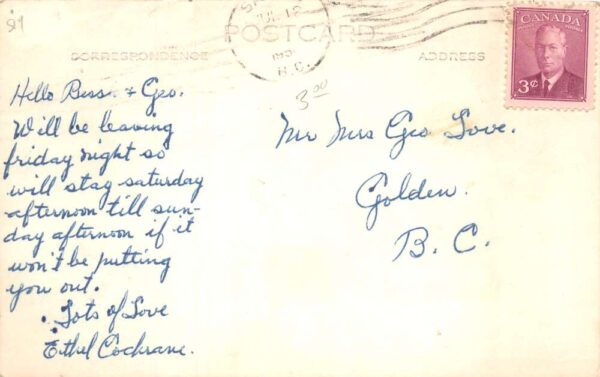 91
JUL 12
B.C.
POSTCARD
CORRESPONDENCE
ADDRESS
CANADA
3¢
3.00
Hello Bess. + Geo.
Will be leaving
friday night so
will stay saturday
afternoon till sun-
day afternoon if it
won't be putting
you out.
Lots of Love
Ethel Cochrane.
Mr Mrs Geo Love.
Golden.
B.C.